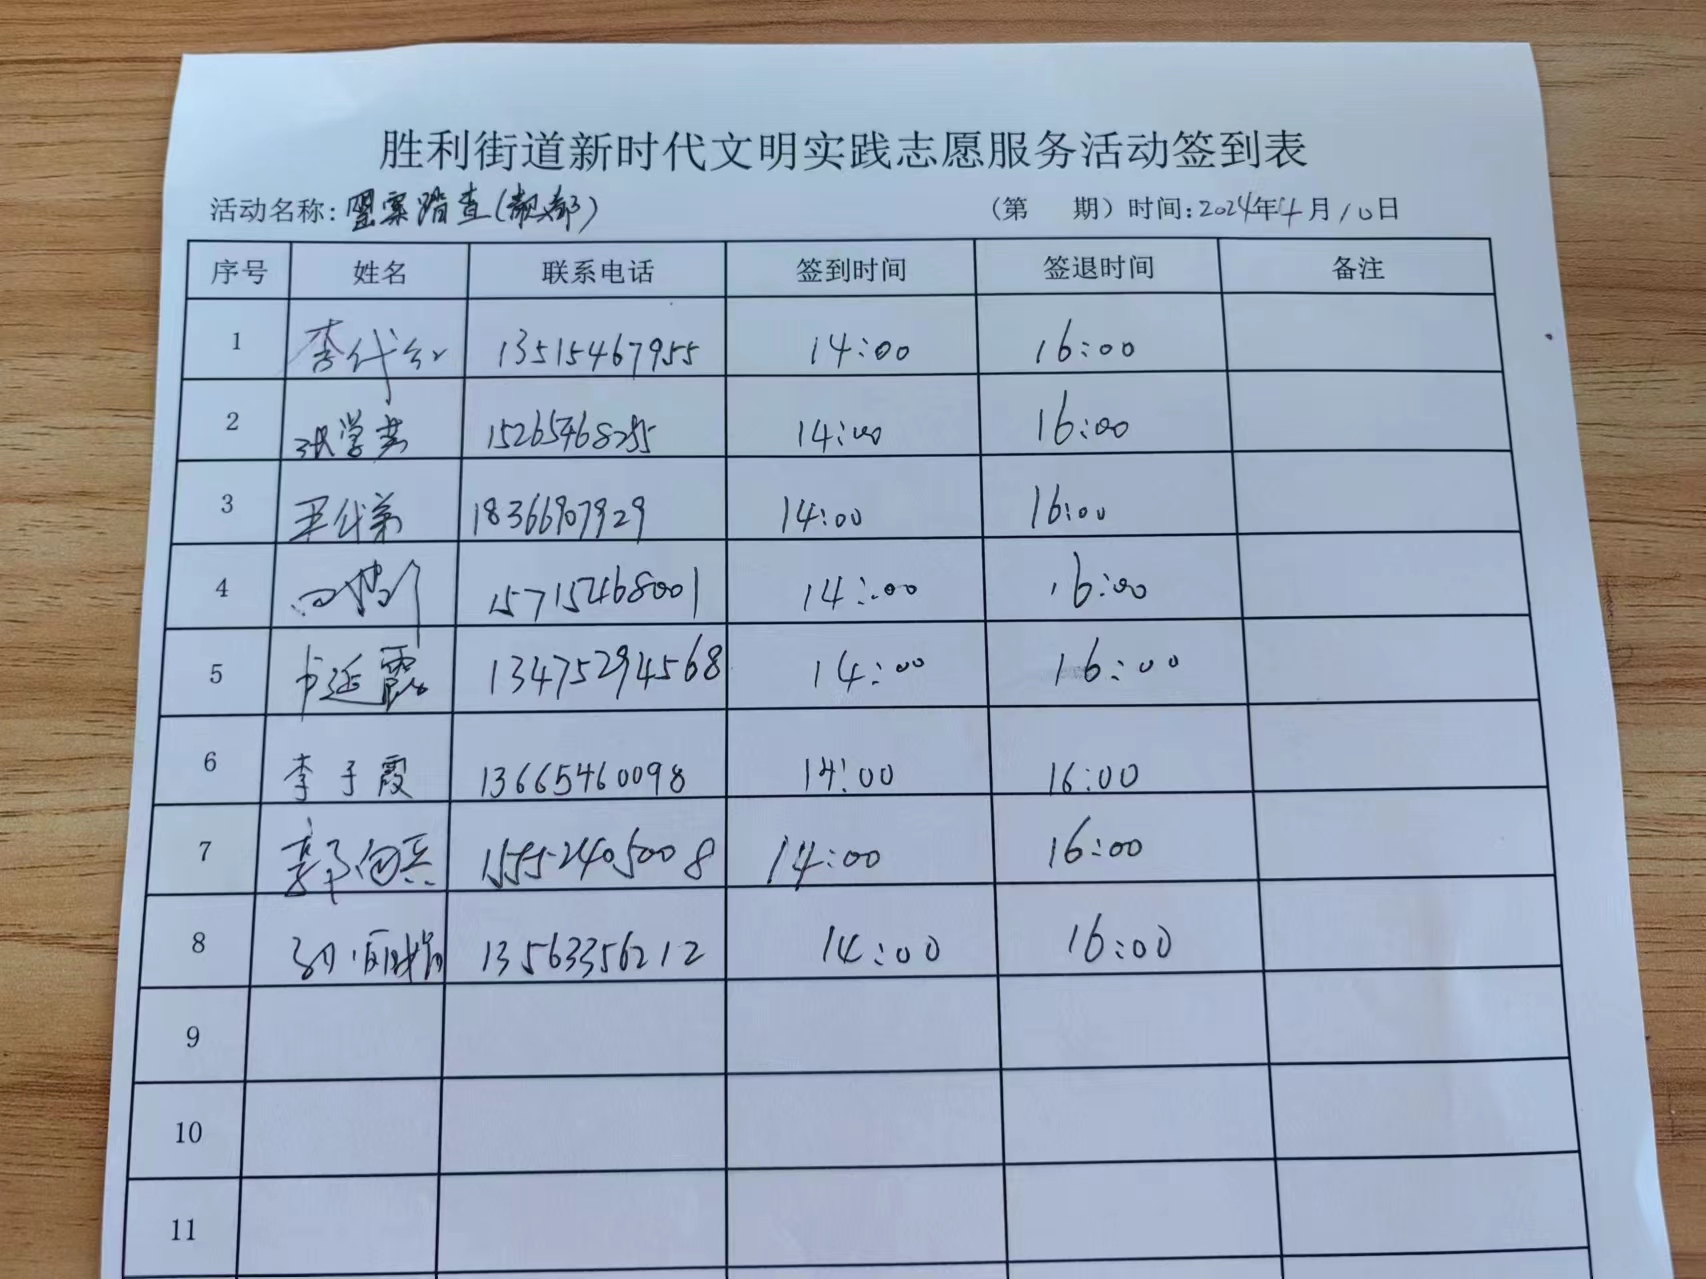 胜利街道新时代文明实践志愿服务活动签到表
活动名称: 查 (第 期) 时间: 2024年4月10日
序号 姓名 联系电话 签到时间 签退时间 备注
1 李代红 13515467955 14:00 16:00
2 张学芳 15265468255 14:00 16:00
3 王代弟 18366907929 14:00 16:00
4 15715468001 14:00 16:00
5 延霞 13475294568 14:00 16:00
6 李子霞 13665460098 14:00 16:00
7 郭向兵 15552405008 14:00 16:00
8 13563356212 14:00 16:00
9
10
11